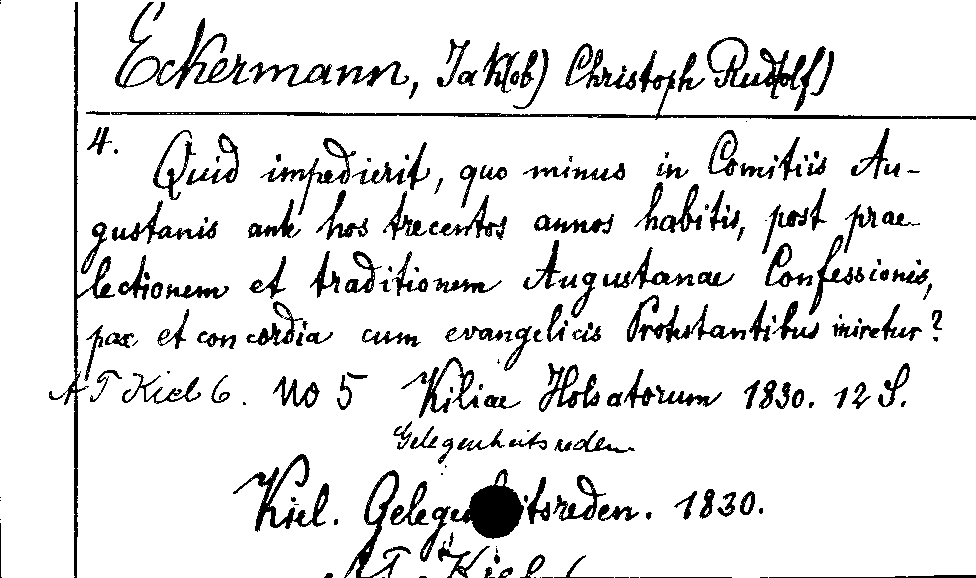 Eckermann, Jak(ob) Christoph Rud(olf)
4.
Quid impedierit, quo minus in Comitiis Au-
gustanis ante hos trecentos annos habitis, post prae-
lectionem et traditionem Augustanae Confessionis,
pax et concordia cum evangelicis Protestantibus iniretur?
AT Kiel 6. no 5 Kiliae Holsatorum 1830. 12 S.
Gelegenheitsreden.
Kiel. Gelegenheitsreden. 1830.
AT Kiel 6